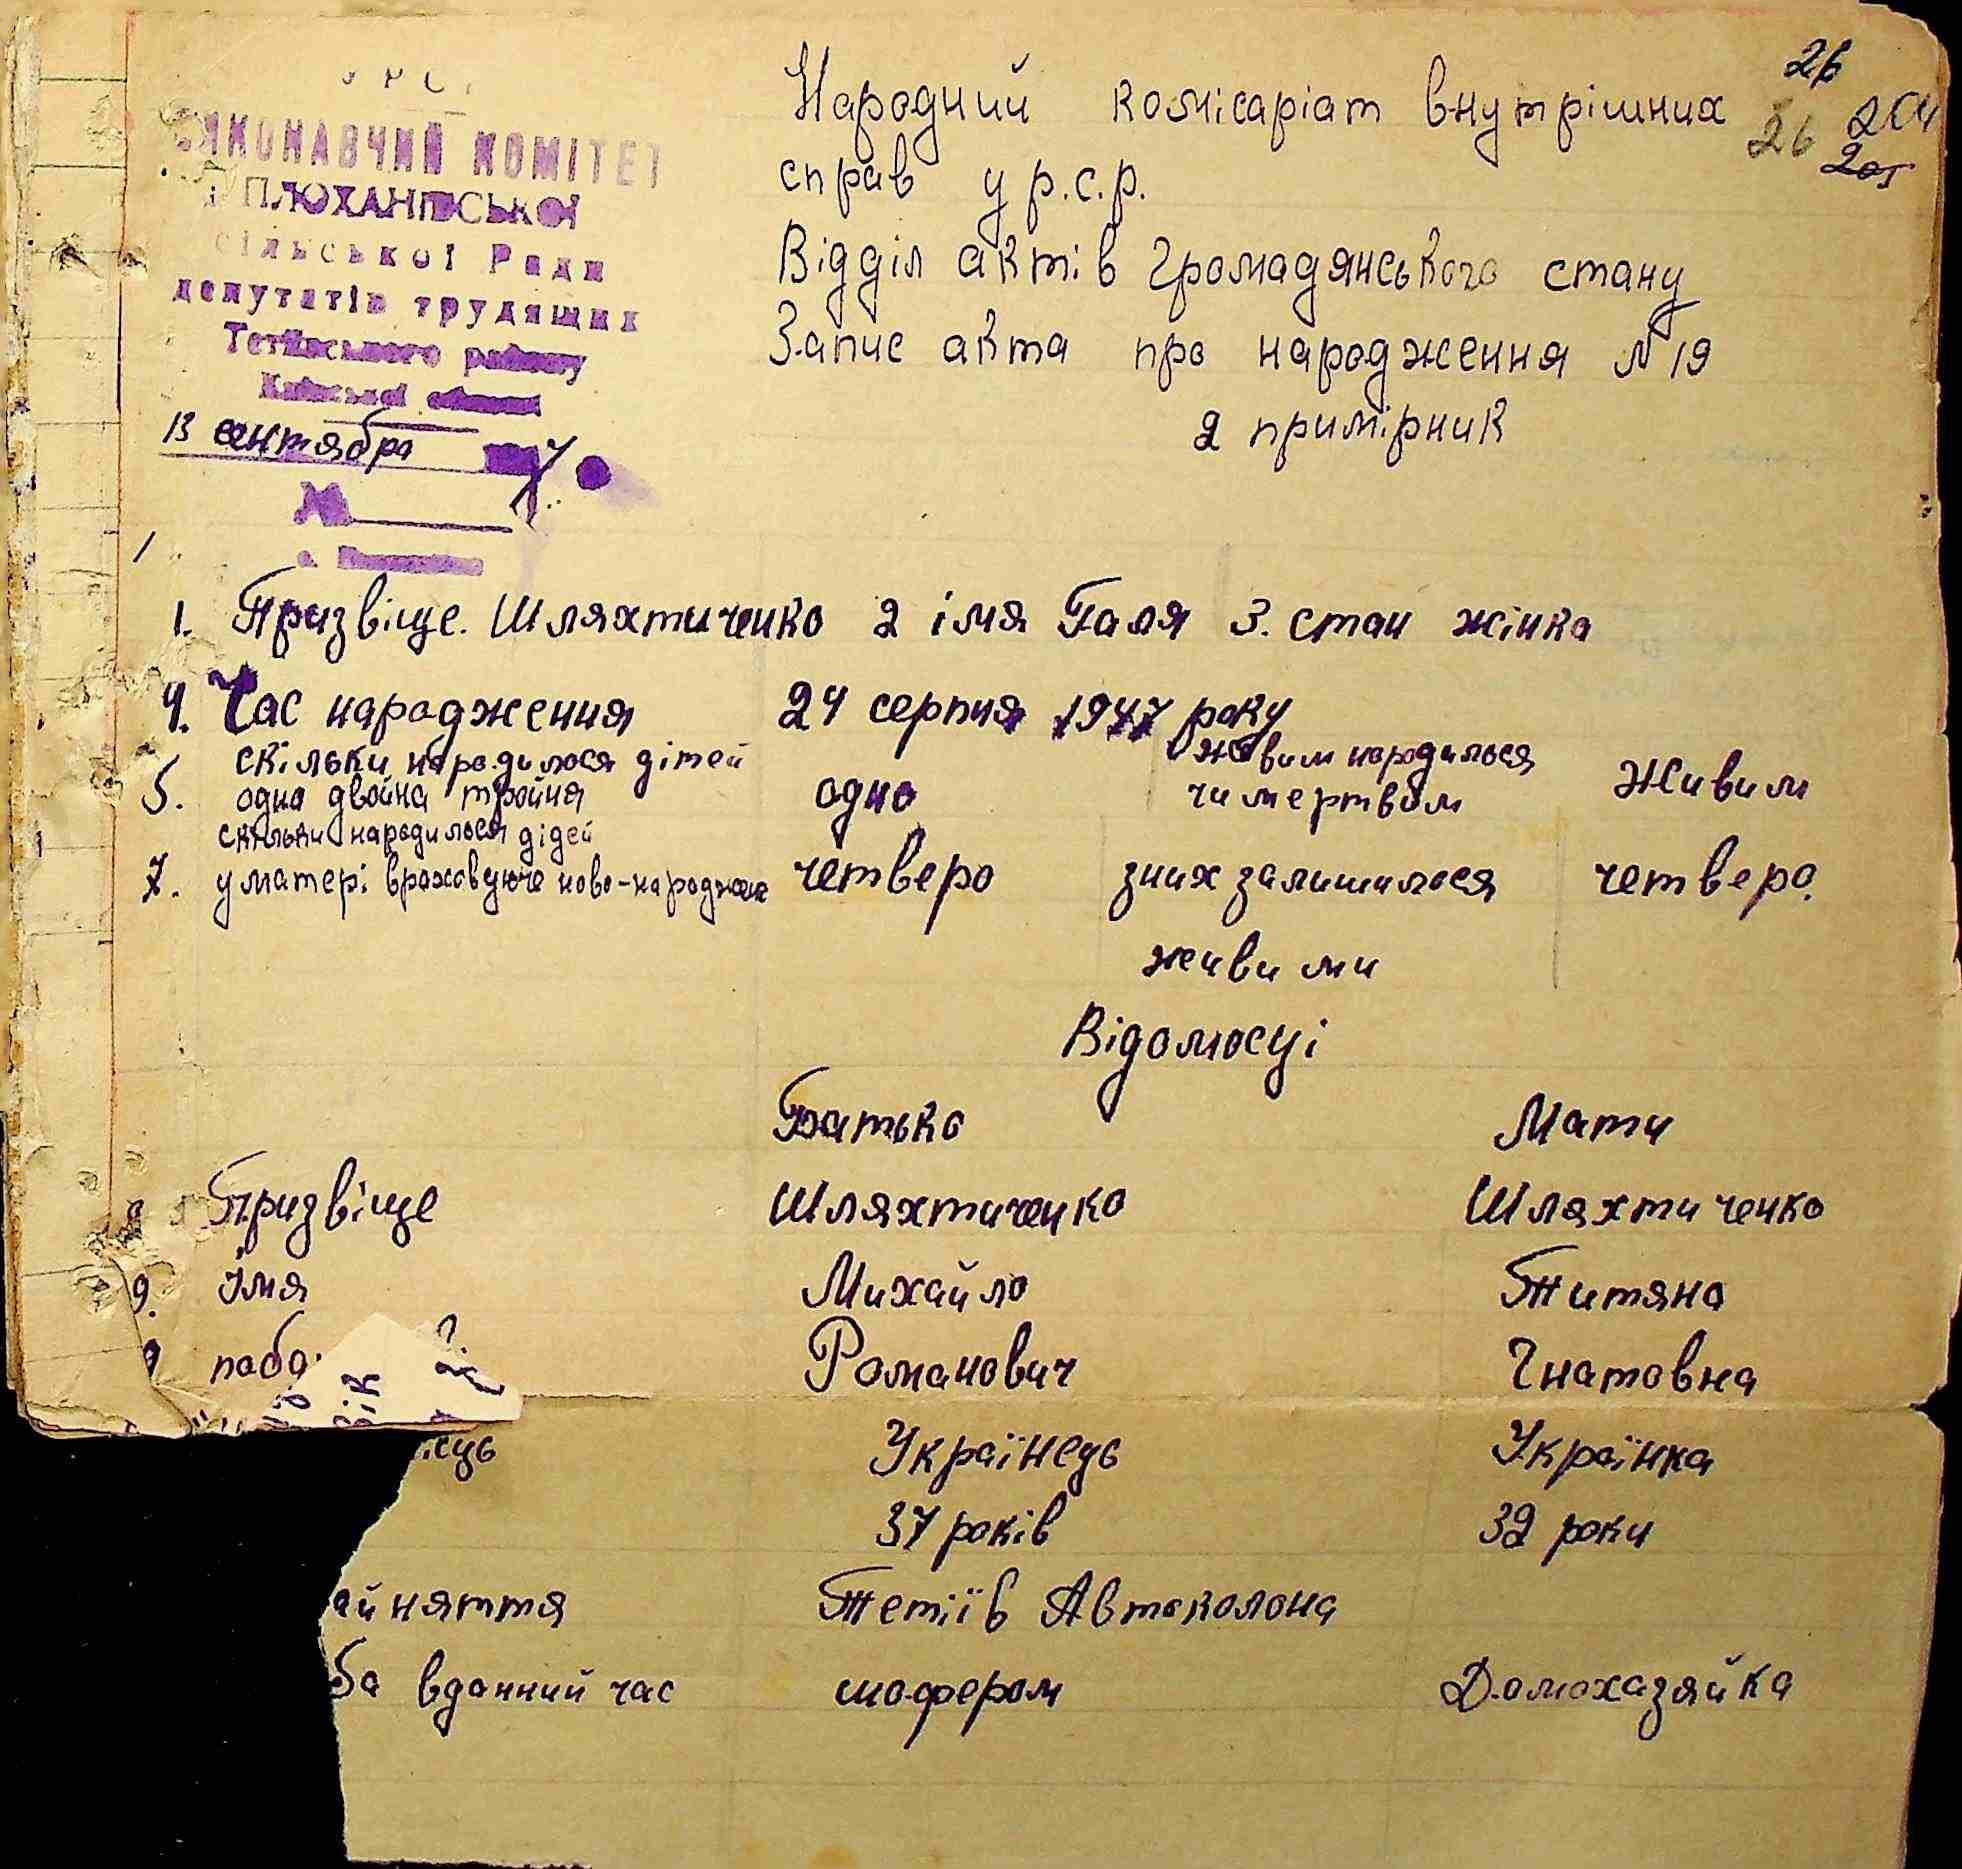 26
26 204
205
Народний комісаріат внутрішних
справ У р.с.р.
Відділ актів громадянського стану
Запис акта про народження № 19
2 примірник
УРС
ВИКОНАВЧИЙ КОМІТЕТ
сільської Ради
депутатів трудящих
Тетіївського району
Київської області
13 сентября 7
№
1. Призвіще. Шляхтиченко 2 імя Галя 3. стан жінка
4. Час народження 24 серпня 1947 року
скільки народилося дітей живим народилося
5. одна двойна тройня одно чи мертвим Живим
скільки народилося дідей
7. у матері враховуюче ново-народжене четверо зних залишилося четверо.
живими
Відомосці
Батько Мати
8 Призвіще Шляхтиченко Шляхтиченко
9. Імя Михайло Титяна
побо Романович Гнатовна
ісць Українець Українка
37 років 32 роки
айняття Тетіїв Автоколона
ба вданний час шофером Домохазяйка